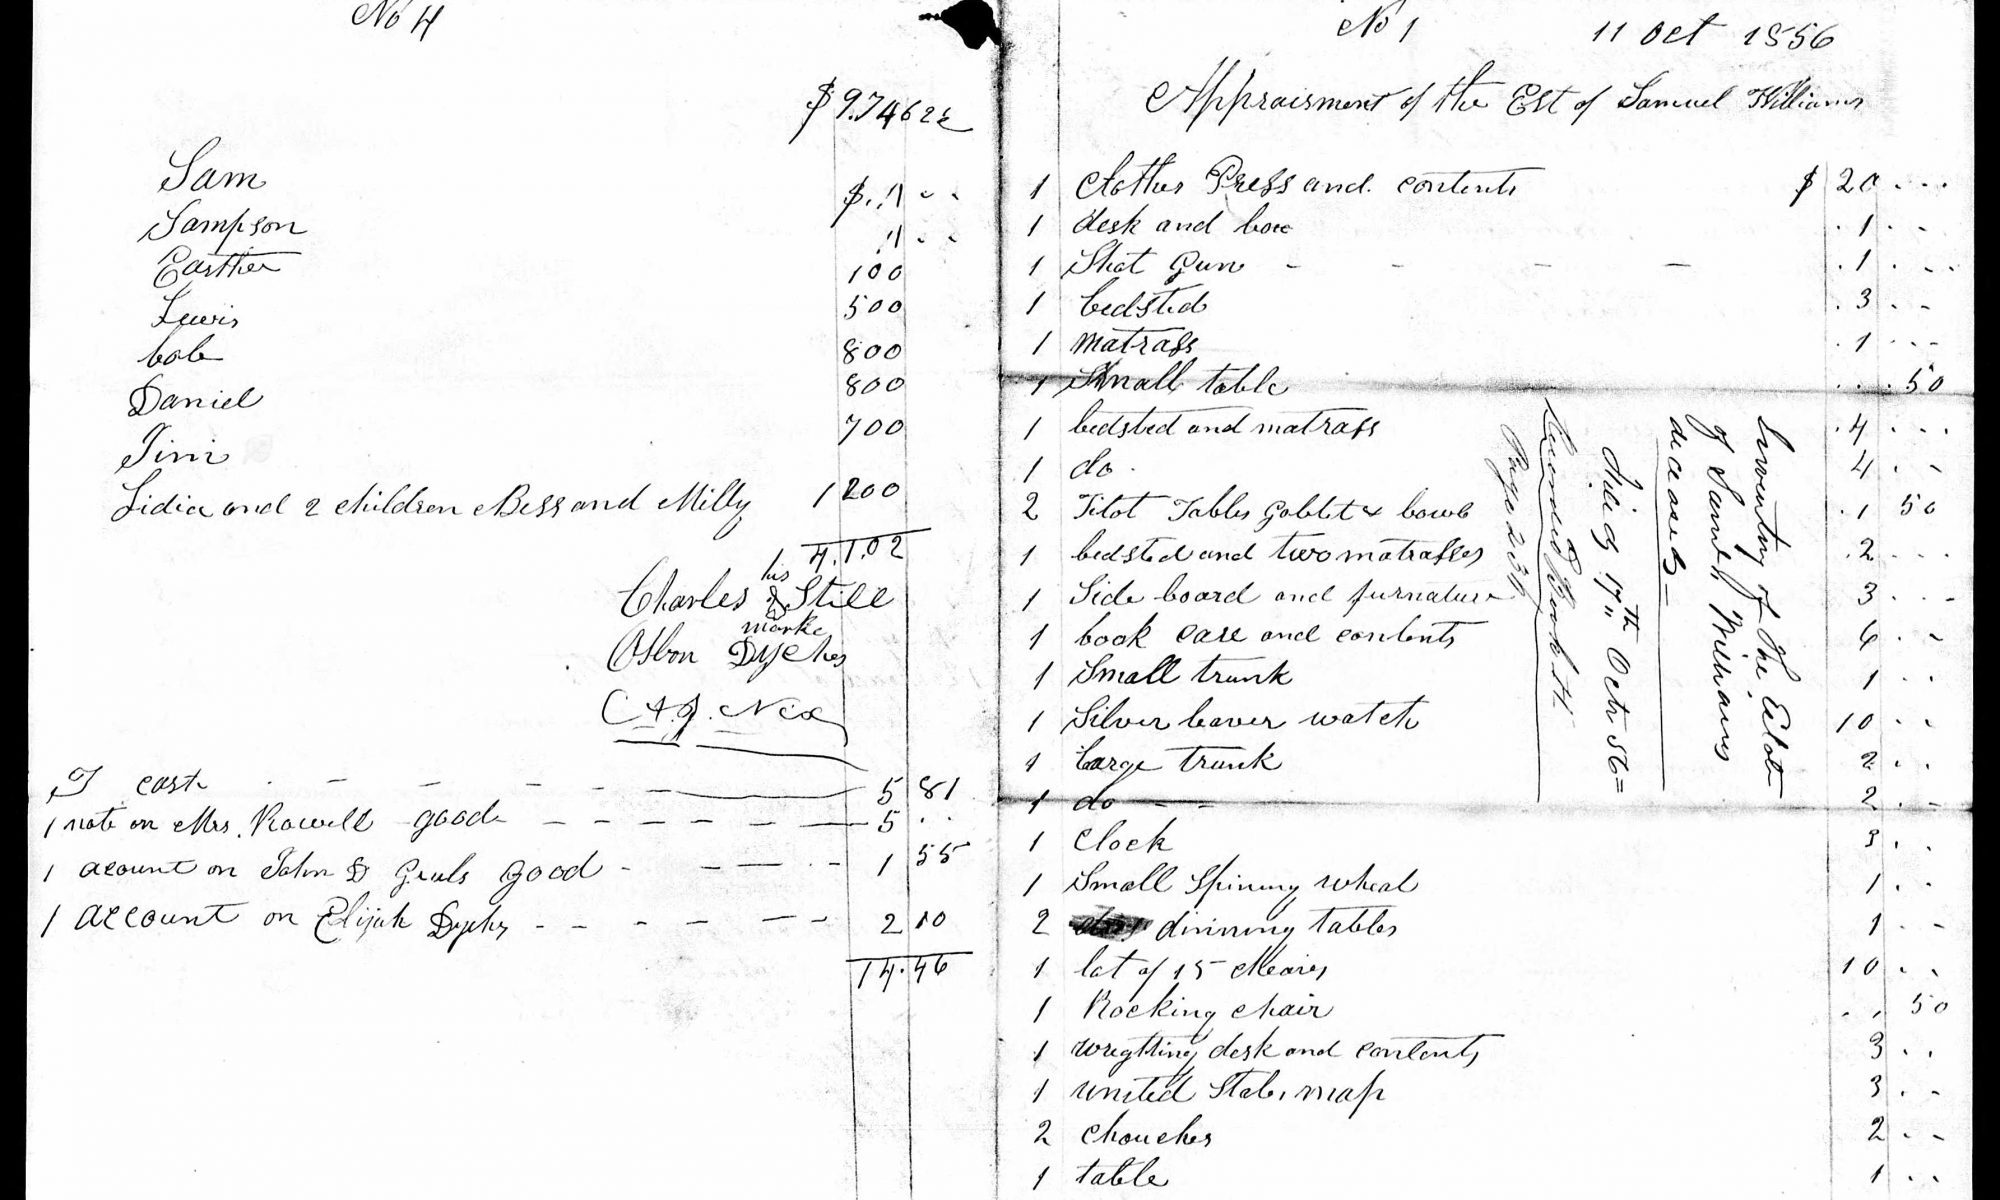 No 4
$ 9.746 25
Sam $ . 1 - -
Sampson 1 - -
Easther 100
Lewis 500
bob 800
Daniel 800
Jim 700
Lidia and 2 children Bess and Milly 1 200
4.1.02
his
Charles Still
marke
Osbon Dyches
A.J. Nix
cash - - - - - 5 81
1 note on Mrs. Rowell good - - - - - 5 . .
1 acount on John D good - - - - 1 55
1 account on Elijah Dyches - - - - - 2 10
14.46
No 1 11 Oct 1856
Appraisment of the Est of Samuel Williams
1 Clothes Press and contents $ 20 . . .
1 desk and box . 1 . - -
1 Shot Gun - - - - . 1 . . .
1 bedsted . 3 . - -
1 matrass . 1 . - -
1 Small table . . . 50
1 bedsted and matrass . 4 . . .
1 do . 4 . -
2 Tables Goblet & bowls . 1 50
1 bedsted and two matrasses . 2 . . .
1 Side board and furnature 3 . . -
1 book case and contents 6 . -
1 Small trunk 1 . .
1 Silver leaver watch 10 . .
1 large trunk 2 . .
1 do - - 2 . -
1 Clock 3 . .
1 Small Spining wheal 1 . .
2 dinning tables 1 . -
1 lot of 15 Cheairs 10 . .
1 Rocking chair . . 50
1 wrighting desk and contents 3 . .
1 united States map 3 . .
2 Chouches 2 . -
1 table 1 . .
Inventory of The Estate
of Saml Williams
deceased =
Filed 17th Octr 56 =
Recorded Book H
Page 239